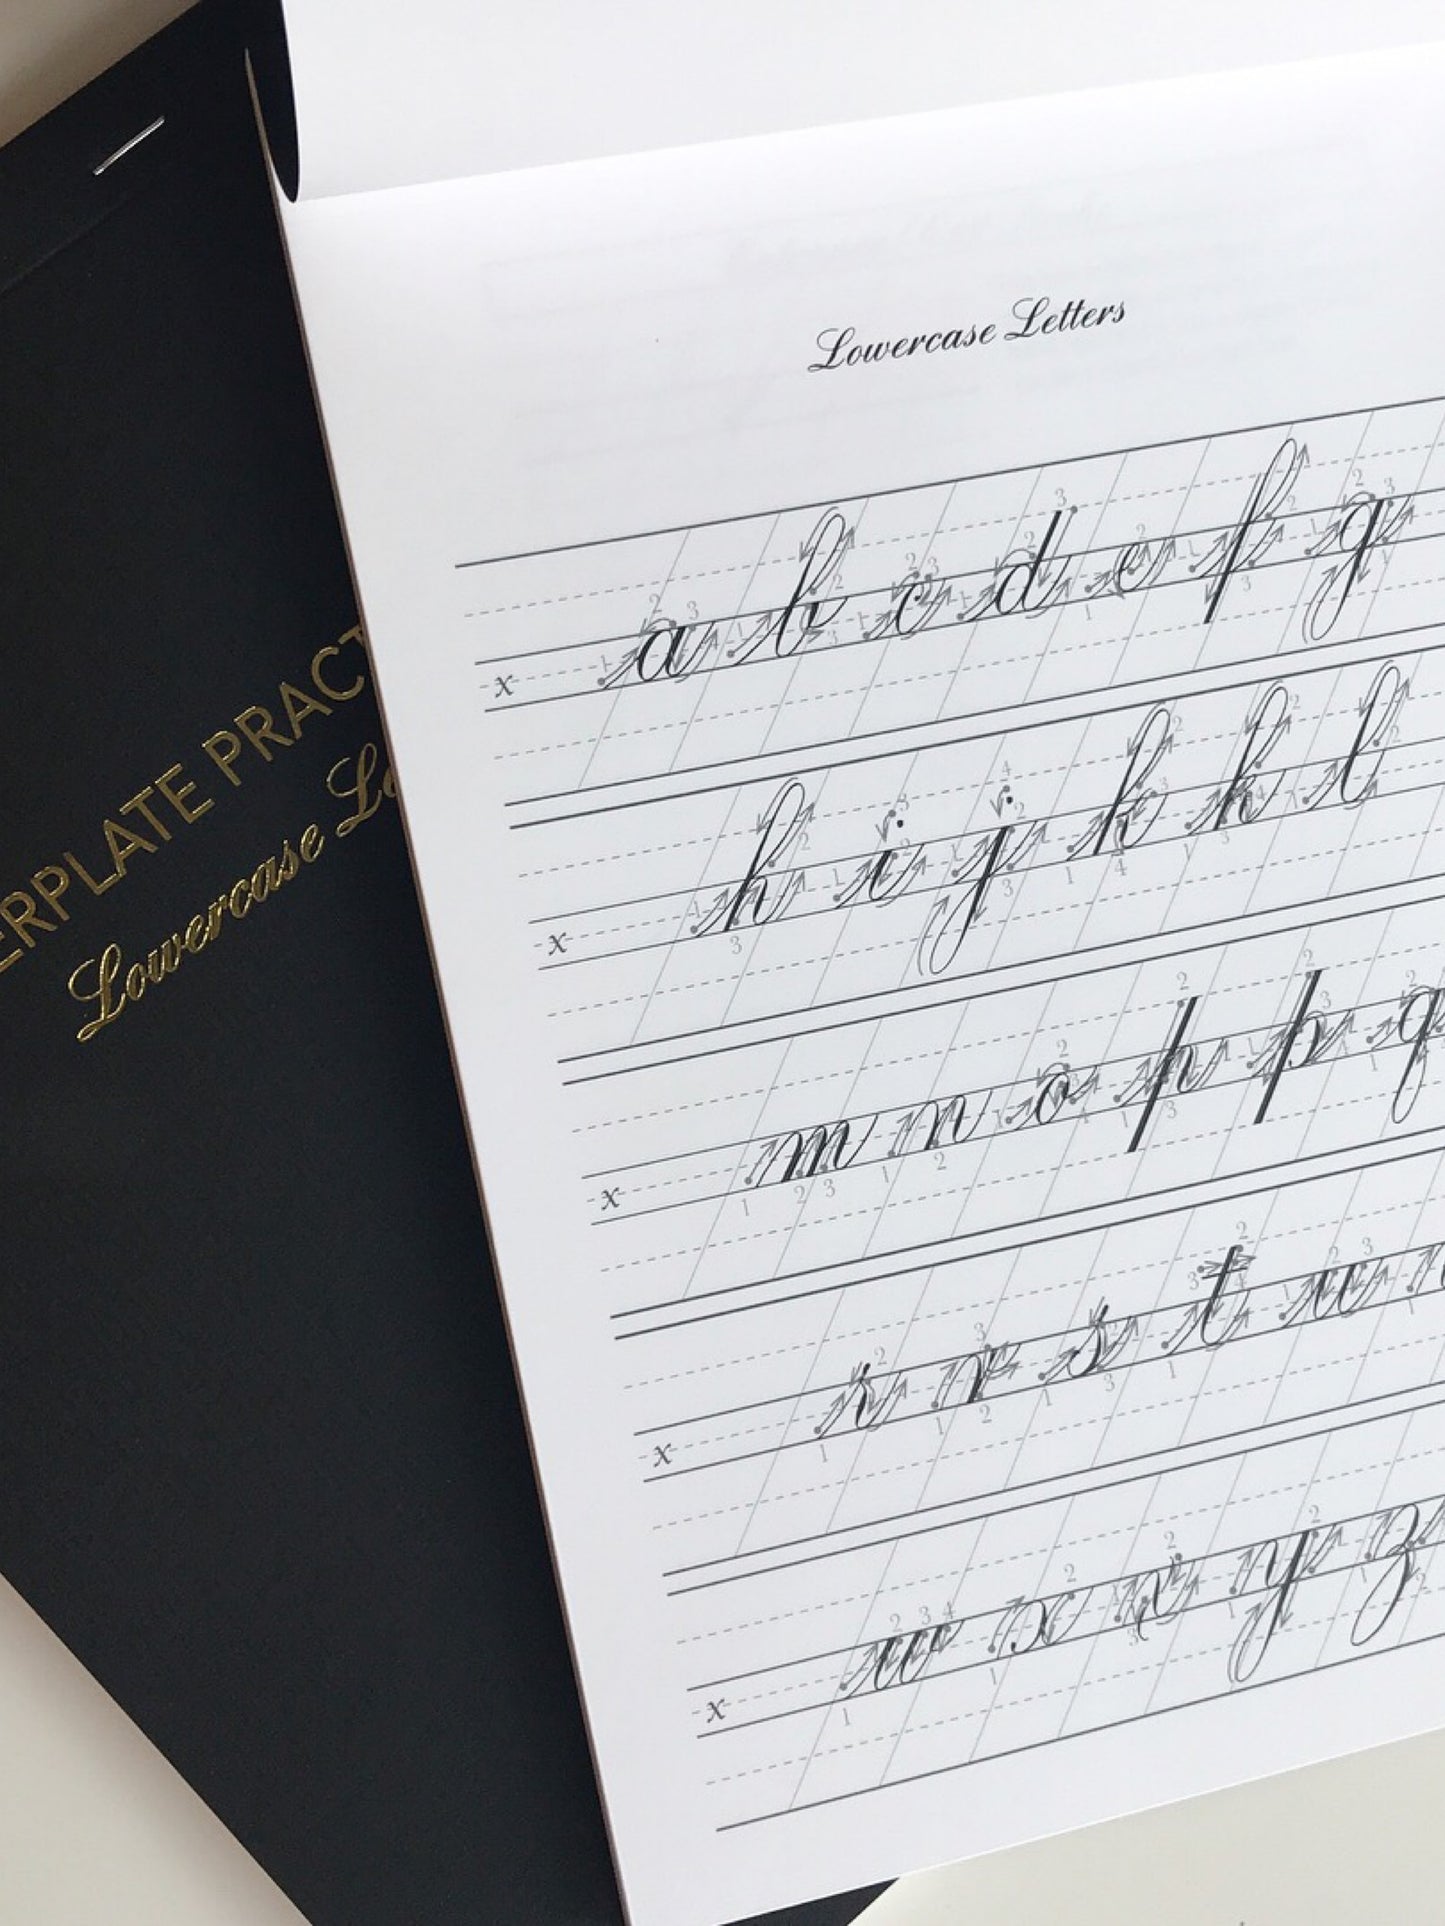 ERPLATE PRACT
Lowercase Le
Lowercase Letters
x a b c d e f g
x h i j k k l
x m n o p p q
x r r s t u
x w x x y z